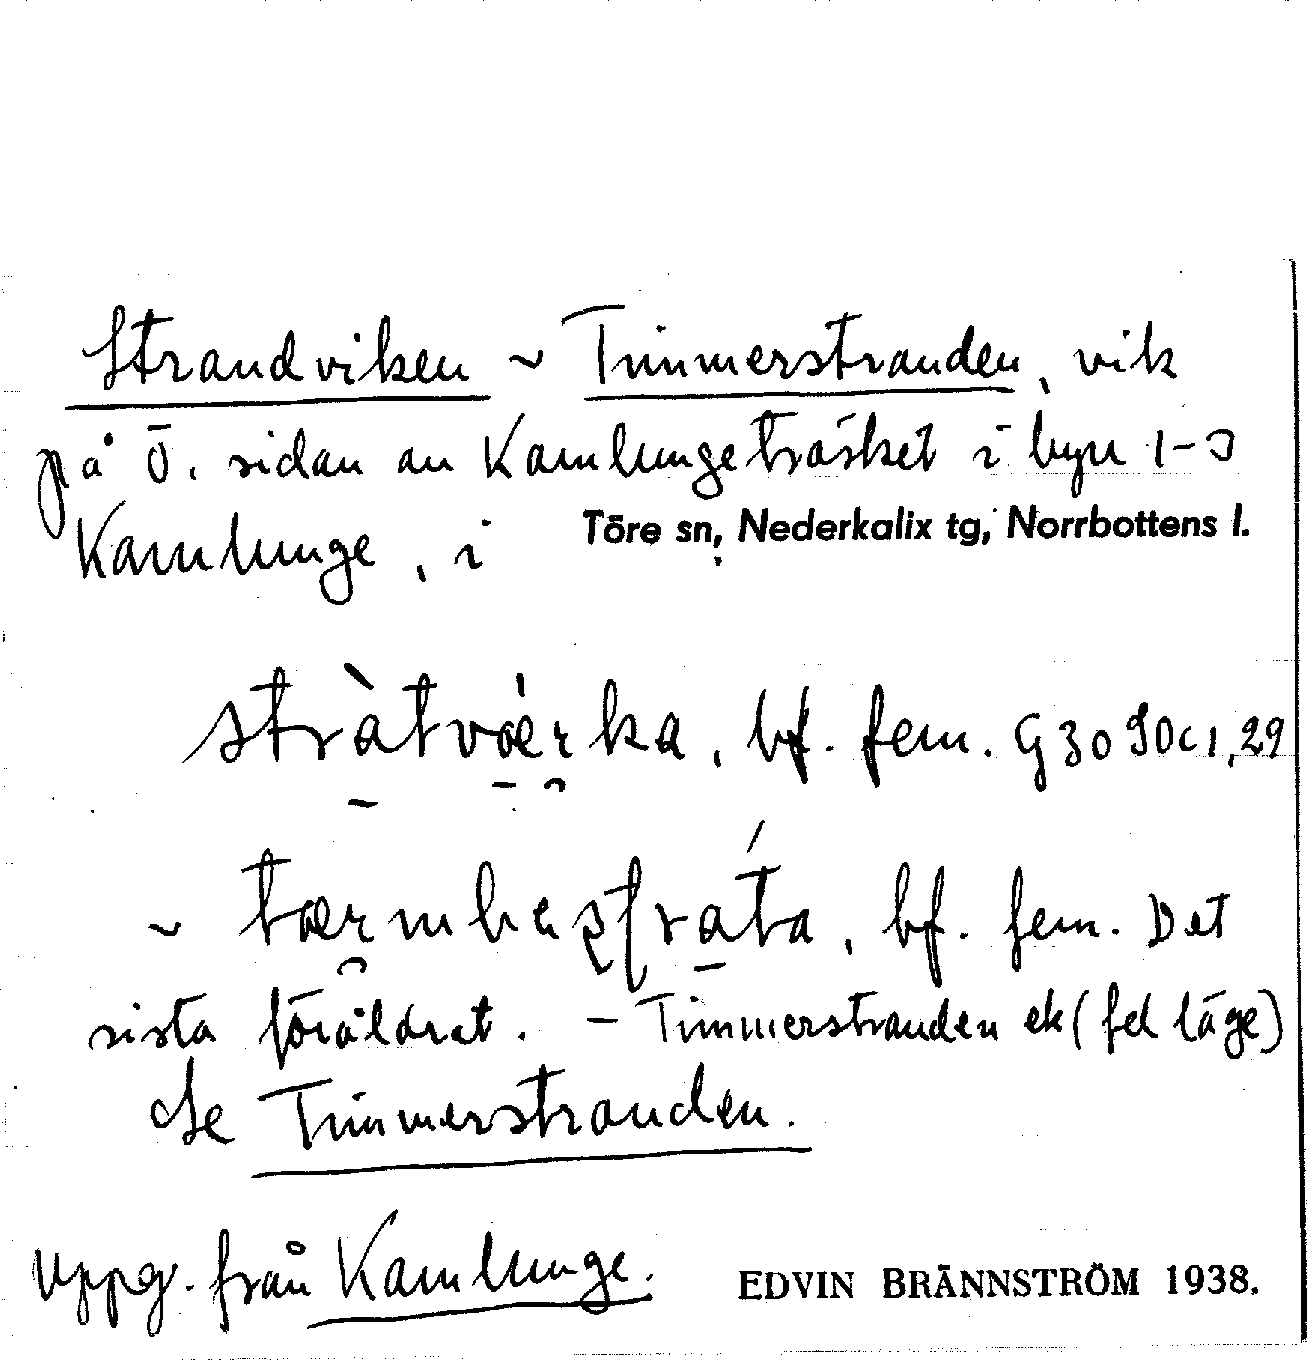 Strandviken ~ Timmerstranden, vik
på ö. sidan av Kamlungeträsket i byn 1-3
Kamlunge, i Töre sn, Nederkalix tg, Norrbottens l.
bf. fem.
~ bf. fem. Det
sista föråldrat. – Timmerstranden ek (fel läge)
Se Timmerstranden.
Uppg. från Kamlunge.
EDVIN BRÄNNSTRÖM 1938.